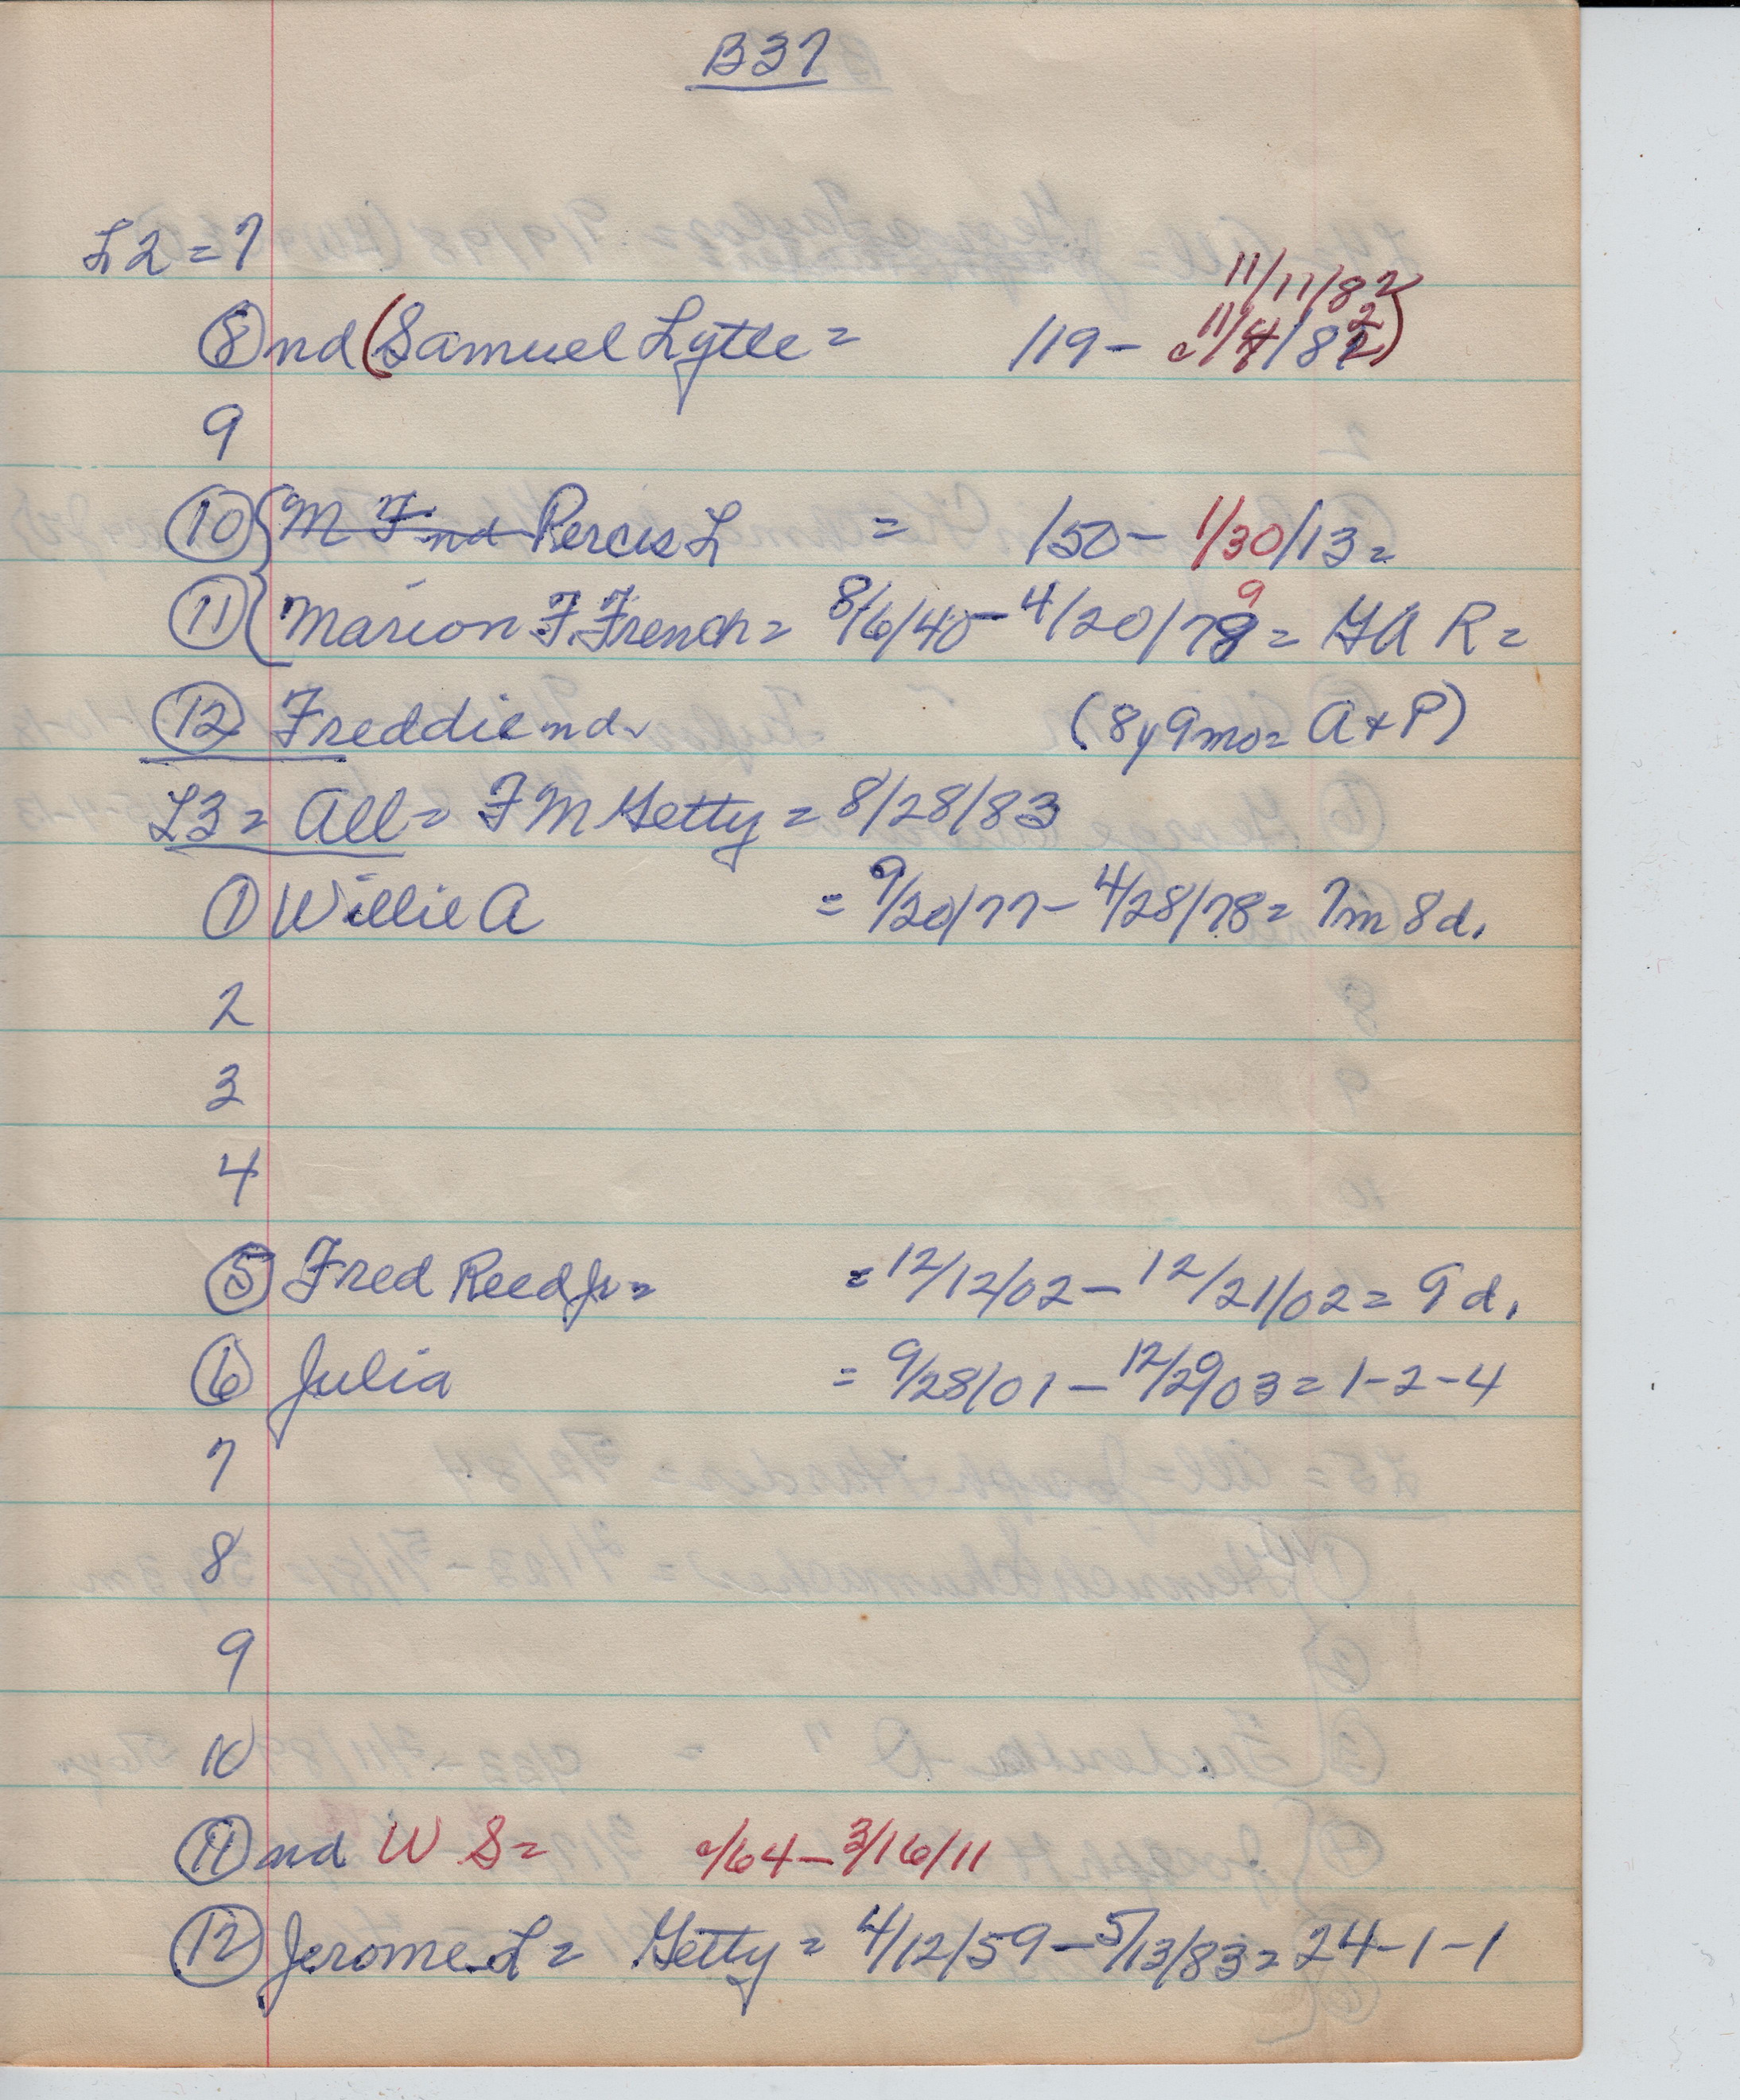 B37
L2 = 7
11/11/82
8 nd (Samuel Lytle = /19 - c11/4/82)
9
10 { M F. nd Percis L = /50 - 1/30/13 =
9
11 { Marion F. French = 8/6/40 - 4/20/78 = GAR =
12 Freddie nd. (8y 9mo = A + P)
L3 = All = F M Getty = 8/28/83
1 Willie A = 9/20/77 - 4/28/78 = 7m 8d.
2
3
4
5 Fred Reed Jr = = 12/12/02 - 12/21/02 = 9d.
6 Julia = 9/28/01 - 12/2/03 = 1-2-4
7
8
9
10
11 nd W S = c/64 - 3/16/11
12 Jerome L = Getty = 4/12/59 - 5/13/83 = 24-1-1